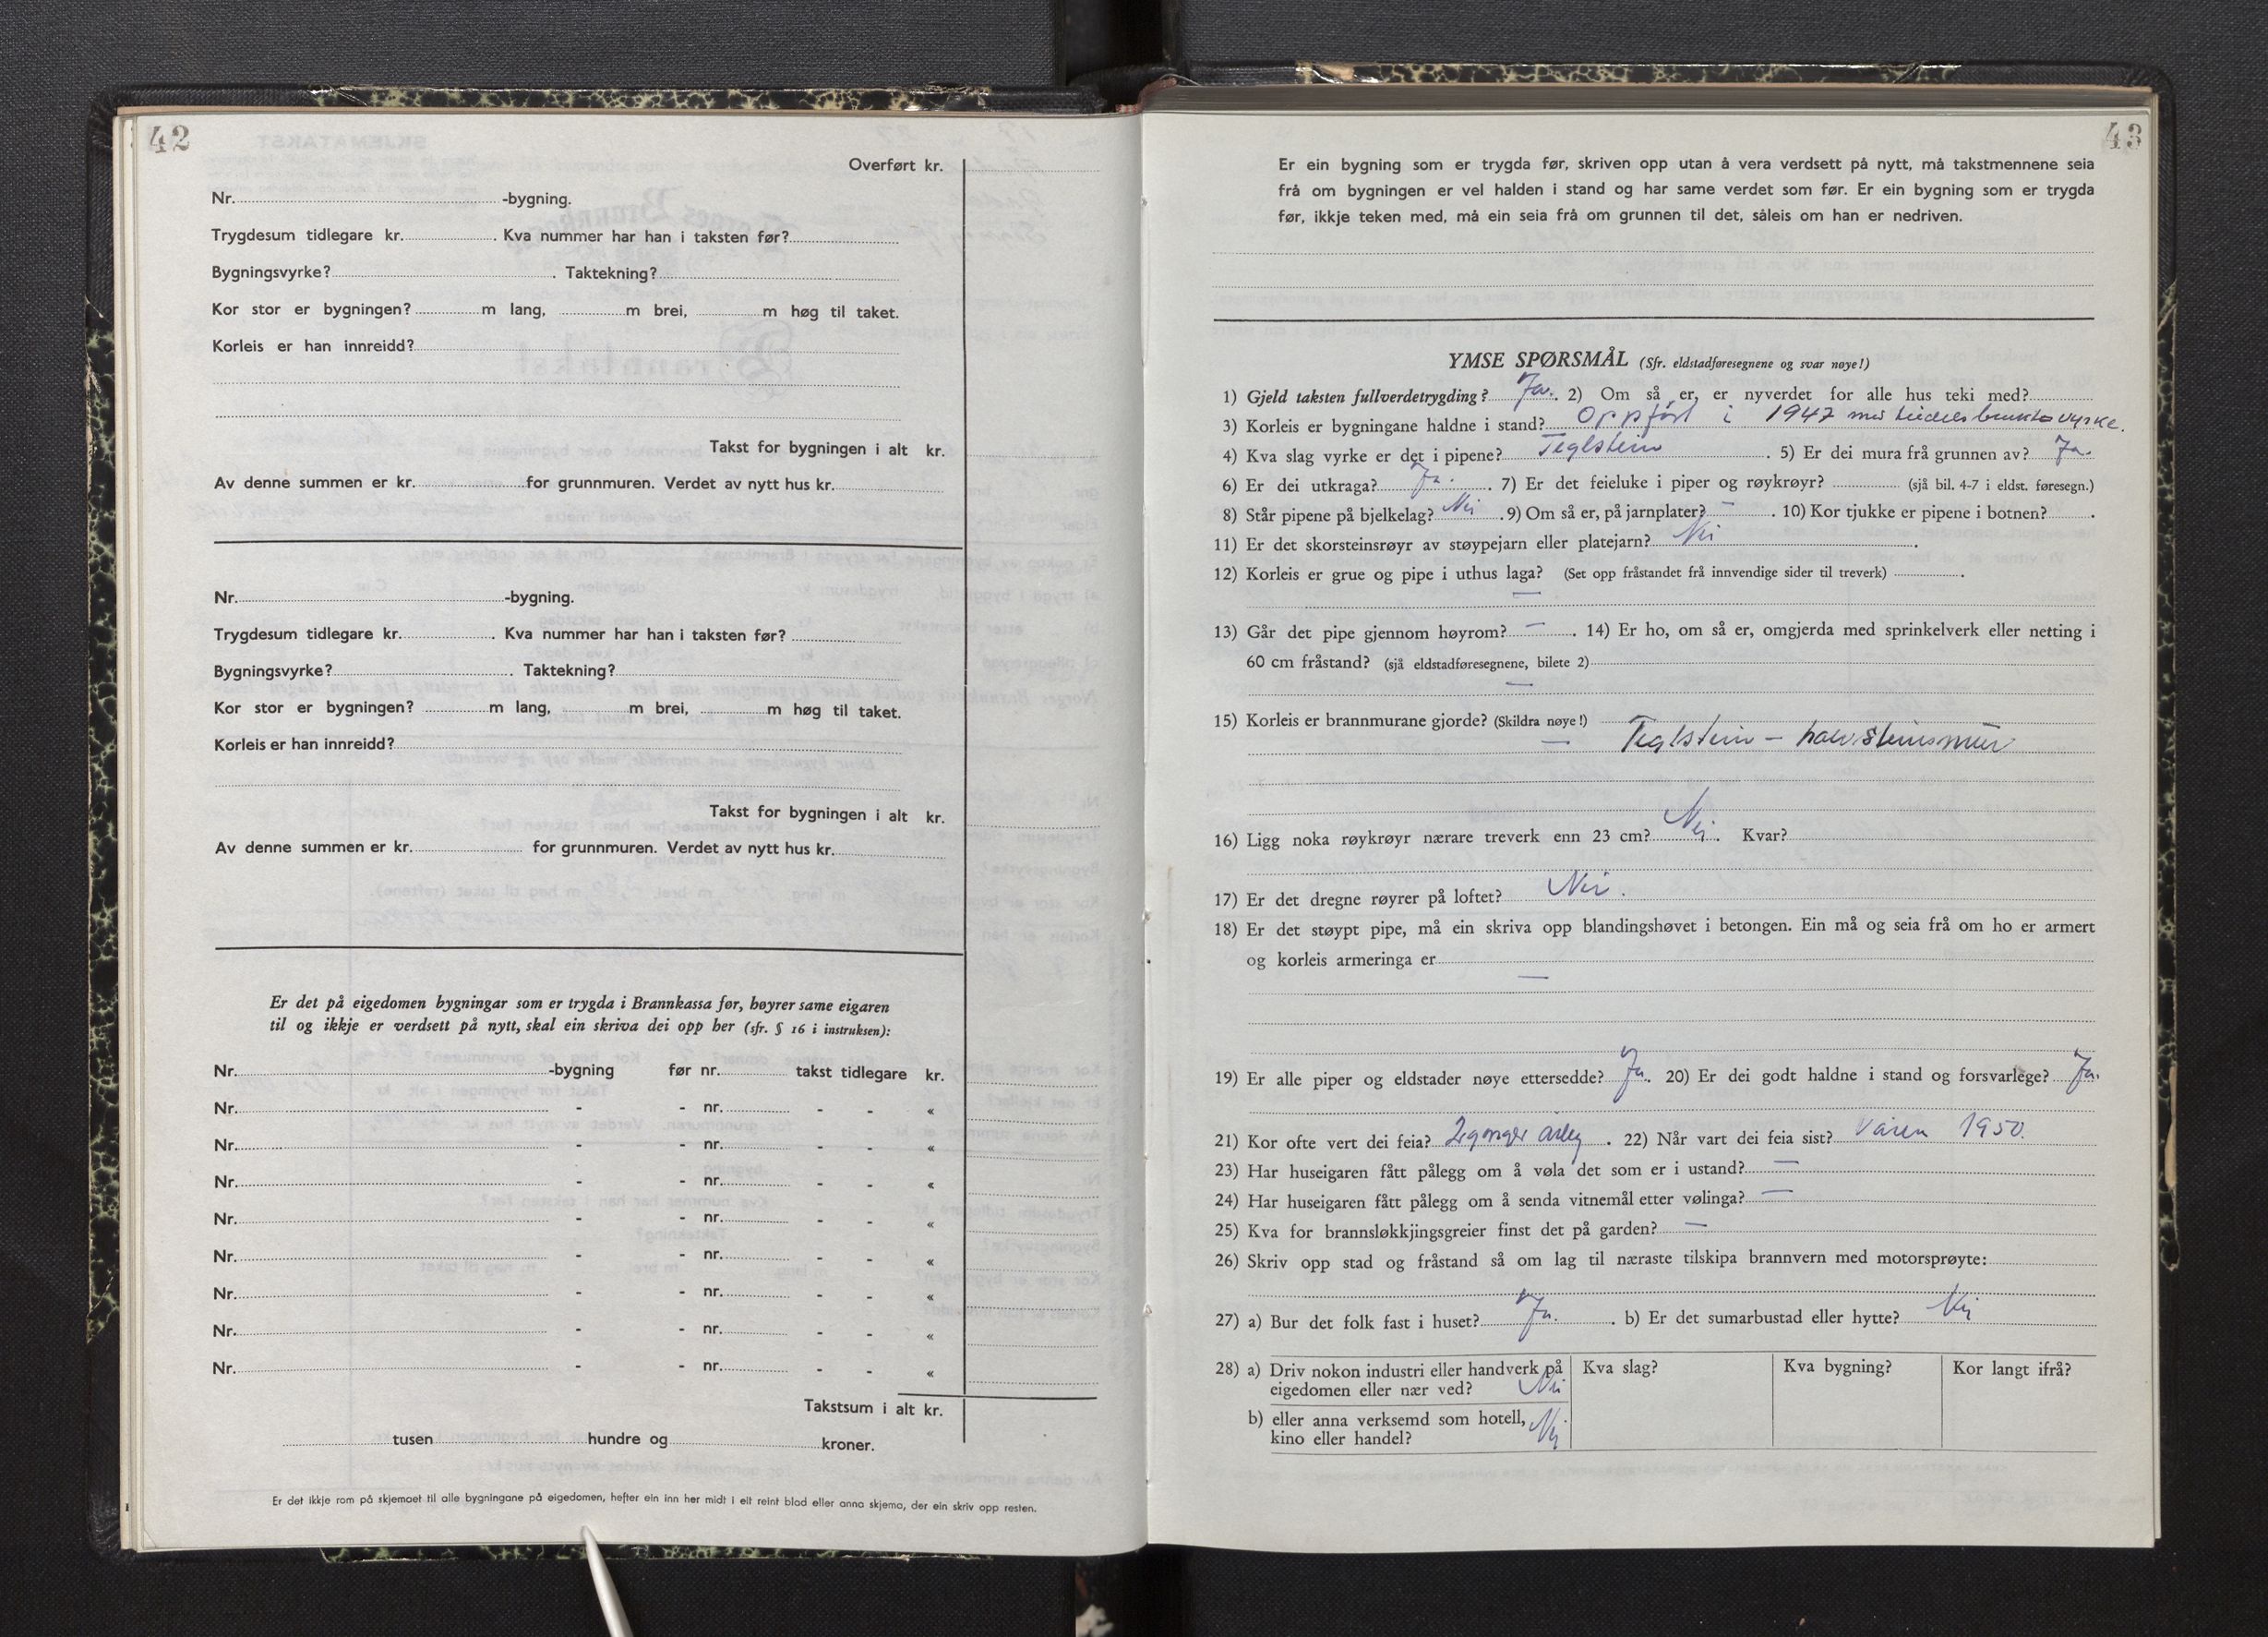 42
Overført kr.
Nr. -bygning.
Trygdesum tidlegare kr. . Kva nummer har han i taksten før?
Bygningsvyrke? . Taktekning?
Kor stor er bygningen? m lang, m brei, m høg til taket.
Korleis er han innreidd?
Takst for bygningen i alt kr.
Av denne summen er kr. for grunnmuren. Verdet av nytt hus kr.
Nr. -bygning.
Trygdesum tidlegare kr. . Kva nummer har han i taksten før?
Bygningsvyrke? . Taktekning?
Kor stor er bygningen? m lang, m brei, m høg til taket.
Korleis er han innreidd?
Takst for bygningen i alt kr.
Av denne summen er kr. for grunnmuren. Verdet av nytt hus kr.
Er det på eigedomen bygningar som er trygda i Brannkassa før, høyrer same eigaren
til og ikkje er verdsett på nytt, skal ein skriva dei opp her (sfr. § 16 i instruksen):
Nr. -bygning før nr. takst tidlegare kr.
Nr. - - nr. - - «
Nr. - - nr. - - «
Nr. - - nr. - - «
Nr. - - nr. - - «
Nr. - - nr. - - «
Nr. - - nr. - - «
Nr. - - nr. - - «
Nr. - - nr. - - «
Takstsum i alt kr.
tusen hundre og kroner.
Er det ikkje rom på skjemaet til alle bygningane på eigedomen, hefter ein inn her midt i eit reint blad eller anna skjema, der ein skriv opp resten.
43
Er ein bygning som er trygda før, skriven opp utan å vera verdsett på nytt, må takstmennene seia
frå om bygningen er vel halden i stand og har same verdet som før. Er ein bygning som er trygda
før, ikkje teken med, må ein seia frå om grunnen til det, såleis om han er nedriven.
YMSE SPØRSMÅL (Sfr. eldstadføresegnene og svar nøye!)
1) Gjeld taksten fullverdetrygding? Ja. 2) Om så er, er nyverdet for alle hus teki med?
3) Korleis er bygningane haldne i stand? Oppført i 1947 vyrke.
4) Kva slag vyrke er det i pipene? Teglstein . 5) Er dei mura frå grunnen av? Ja.
6) Er dei utkraga? Ja. . 7) Er det feieluke i piper og røykrøyr? (sjå bil. 4-7 i eldst. føresegn.)
8) Står pipene på bjelkelag? Nei . 9) Om så er, på jarnplater? — . 10) Kor tjukke er pipene i botnen? .
11) Er det skorsteinsrøyr av støypejarn eller platejarn? Nei .
12) Korleis er grue og pipe i uthus laga? (Set opp fråstandet frå innvendige sider til treverk) .
—
13) Går det pipe gjennom høyrom? — . 14) Er ho, om så er, omgjerda med sprinkelverk eller netting i
60 cm fråstand? (sjå eldstadføresegnene, bilete 2)
—
15) Korleis er brannmurane gjorde? (Skildra nøye!)
— Teglstein — halvsteinsmur
16) Ligg noka røykrøyr nærare treverk enn 23 cm? Nei. Kvar?
17) Er det dregne røyrer på loftet? Nei.
18) Er det støypt pipe, må ein skriva opp blandingshøvet i betongen. Ein må og seia frå om ho er armert
og korleis armeringa er
—
19) Er alle piper og eldstader nøye ettersedde? Ja. 20) Er dei godt haldne i stand og forsvarlege? Ja.
21) Kor ofte vert dei feia? 2 gonger årleg . 22) Når vart dei feia sist? Våren 1950.
23) Har huseigaren fått pålegg om å vøla det som er i ustand? —
24) Har huseigaren fått pålegg om å senda vitnemål etter vølinga? —
25) Kva for brannsløkkjingsgreier finst det på garden? —
26) Skriv opp stad og fråstand så om lag til næraste tilskipa brannvern med motorsprøyte:
27) a) Bur det folk fast i huset? Ja. . b) Er det sumarbustad eller hytte? Nei
28) a) Driv nokon industri eller handverk på Kva slag? Kva bygning? Kor langt ifrå?
eigedomen eller nær ved? Nei
b) eller anna verksemd som hotell,
kino eller handel? Nei